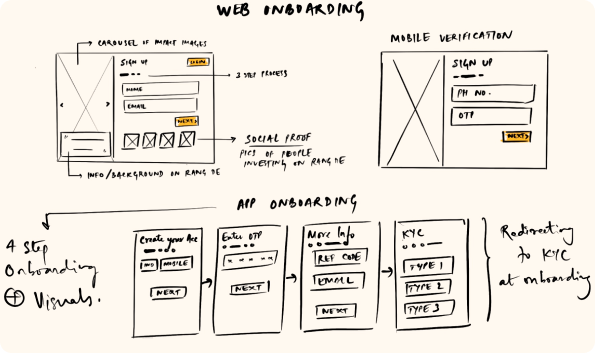 WEB ONBOARDING
CAROUSEL OF IMPACT IMAGES
SIGN UP
LOGIN
3 STEP PROCESS
NAME
EMAIL
NEXT >
SOCIAL PROOF
PICS OF PEOPLE
INVESTING ON RANG DE
INFO/BACKGROUND ON RANG DE
MOBILE VERIFICATION
SIGN UP
PH NO.
OTP
NEXT >
APP ONBOARDING
4 Step
Onboarding
+ Visuals.
Create your Acc
IND MOBILE
NEXT
Enter OTP
x x x x
NEXT
More Info
REF CODE
EMAIL
NEXT
KYC
TYPE 1
TYPE 2
TYPE 3
Redirecting
to KYC
at onboarding